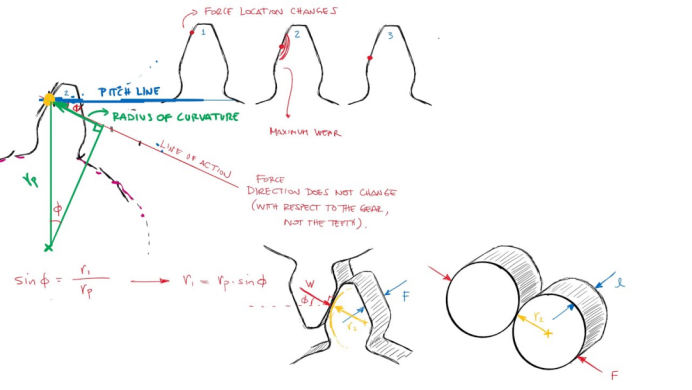 FORCE LOCATION CHANGES
1
2
3
2
PITCH LINE
ϕ
RADIUS OF CURVATURE
MAXIMUM WEAR
LINE OF ACTION
rp
ϕ
FORCE
DIRECTION DOES NOT CHANGE
(WITH RESPECT TO THE GEAR,
NOT THE TEETH).
sinϕ = r1/rp → r1 = rp·sinϕ
W
ϕ
F
r2
l
r2
F